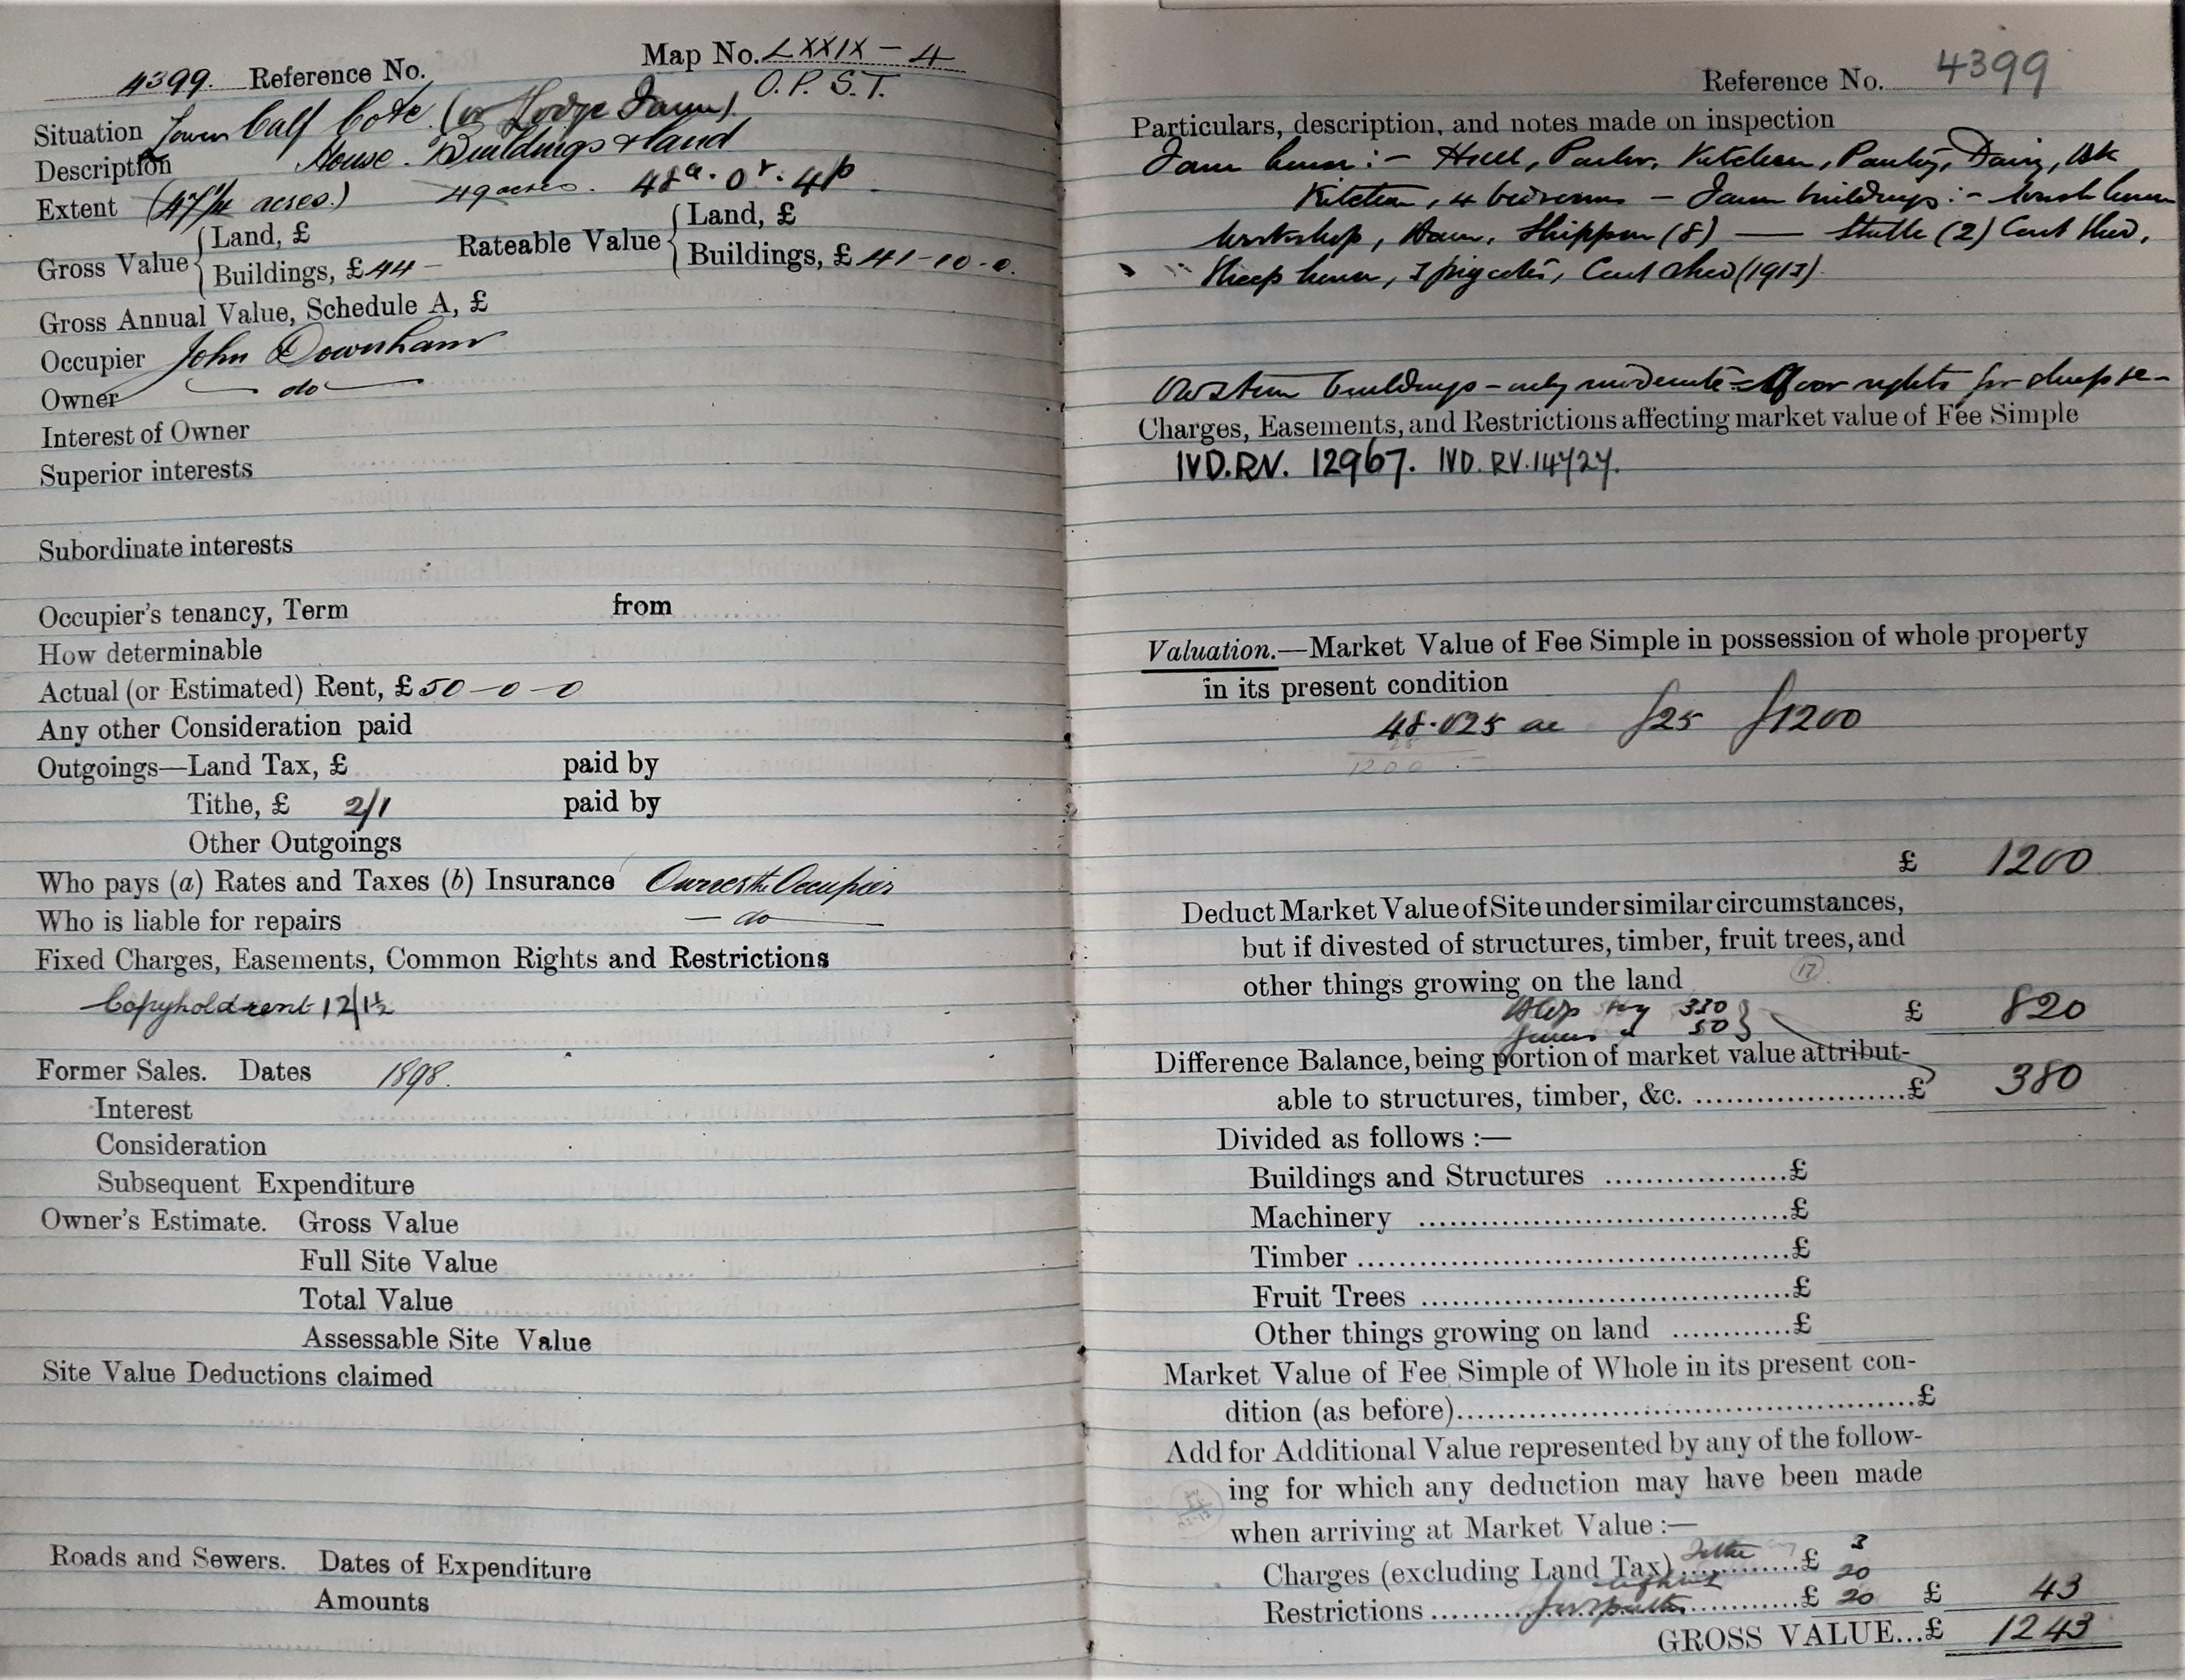 4399. Reference No. Map No. LXXIX - 4
O.P. S.T.
Situation Lower Calf Cote (or Lodge Farm)
Description House. Buildings & land
Extent (47 1/4 acres.) 49 acres. 48a. 0r. 4p.
Gross Value { Land, £
Buildings, £ 44 –
Rateable Value { Land, £
Buildings, £ 41-10-0.
Gross Annual Value, Schedule A, £
Occupier John Downham
Owner do
Interest of Owner
Superior interests
Subordinate interests
Occupier's tenancy, Term from
How determinable
Actual (or Estimated) Rent, £ 50 – 0 – 0
Any other Consideration paid
Outgoings—Land Tax, £ paid by
Tithe, £ 2/1 paid by
Other Outgoings
Who pays (a) Rates and Taxes (b) Insurance Owner the Occupier
Who is liable for repairs – do –
Fixed Charges, Easements, Common Rights and Restrictions
Copyhold rent 12/1½
Former Sales. Dates 1898.
Interest
Consideration
Subsequent Expenditure
Owner's Estimate. Gross Value
Full Site Value
Total Value
Assessable Site Value
Site Value Deductions claimed
Roads and Sewers. Dates of Expenditure
Amounts
Reference No. 4399
Particulars, description, and notes made on inspection
Farm house:- Hall, Parlor, Kitchen, Pantry, Dairy, Bk
Kitchen, 4 bedrooms – Farm buildings:- wash house
Workshop, Barn, Shippon (8) — Stable (2) Cart Shed,
Sheep house, pig cotes, Cart shed (1913)
buildings – only moderate – rights for sheep
Charges, Easements, and Restrictions affecting market value of Fee Simple
IVD.RV. 12967. IVD. RV. 14727.
Valuation.—Market Value of Fee Simple in possession of whole property
in its present condition
48.025 ac £25 £1200
1200
£ 1200
Deduct Market Value of Site under similar circumstances,
but if divested of structures, timber, fruit trees, and
other things growing on the land 17
Bldgs 330
50 } £ 820
Difference Balance, being portion of market value attribut-
able to structures, timber, &c. ....................£ 380
Divided as follows :—
Buildings and Structures ..................£
Machinery ....................................£
Timber ..........................................£
Fruit Trees ....................................£
Other things growing on land ............£
Market Value of Fee Simple of Whole in its present con-
dition (as before)..............................................£
Add for Additional Value represented by any of the follow-
ing for which any deduction may have been made
when arriving at Market Value :—
Charges (excluding Land Tax) Tithe ......£ 3
20
Restrictions ........ footpaths ........£ 20 £ 43
GROSS VALUE...£ 1243